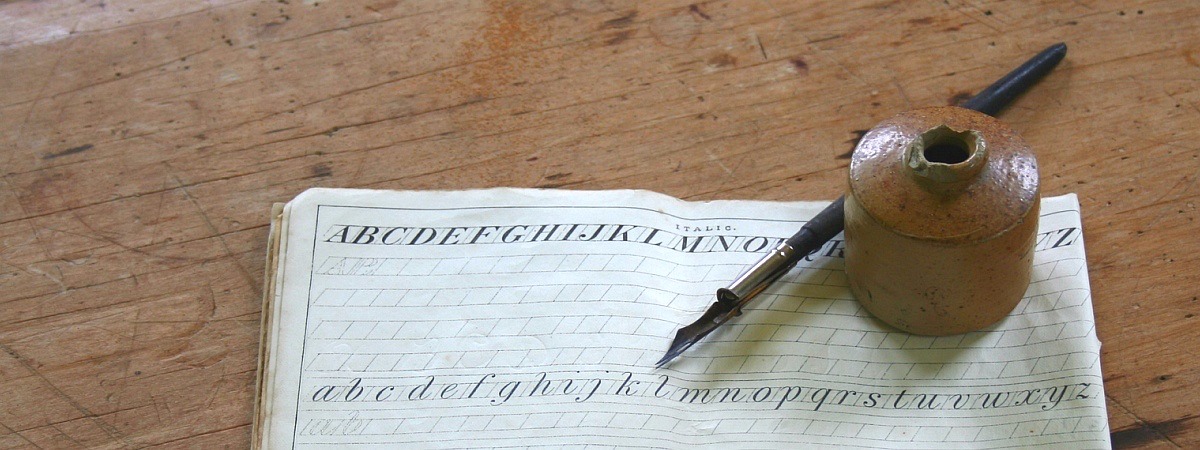 ITALIC.
ABCDEFGHIJKLMNO YZ
abcdefghijklmnopqrstuvwxyz